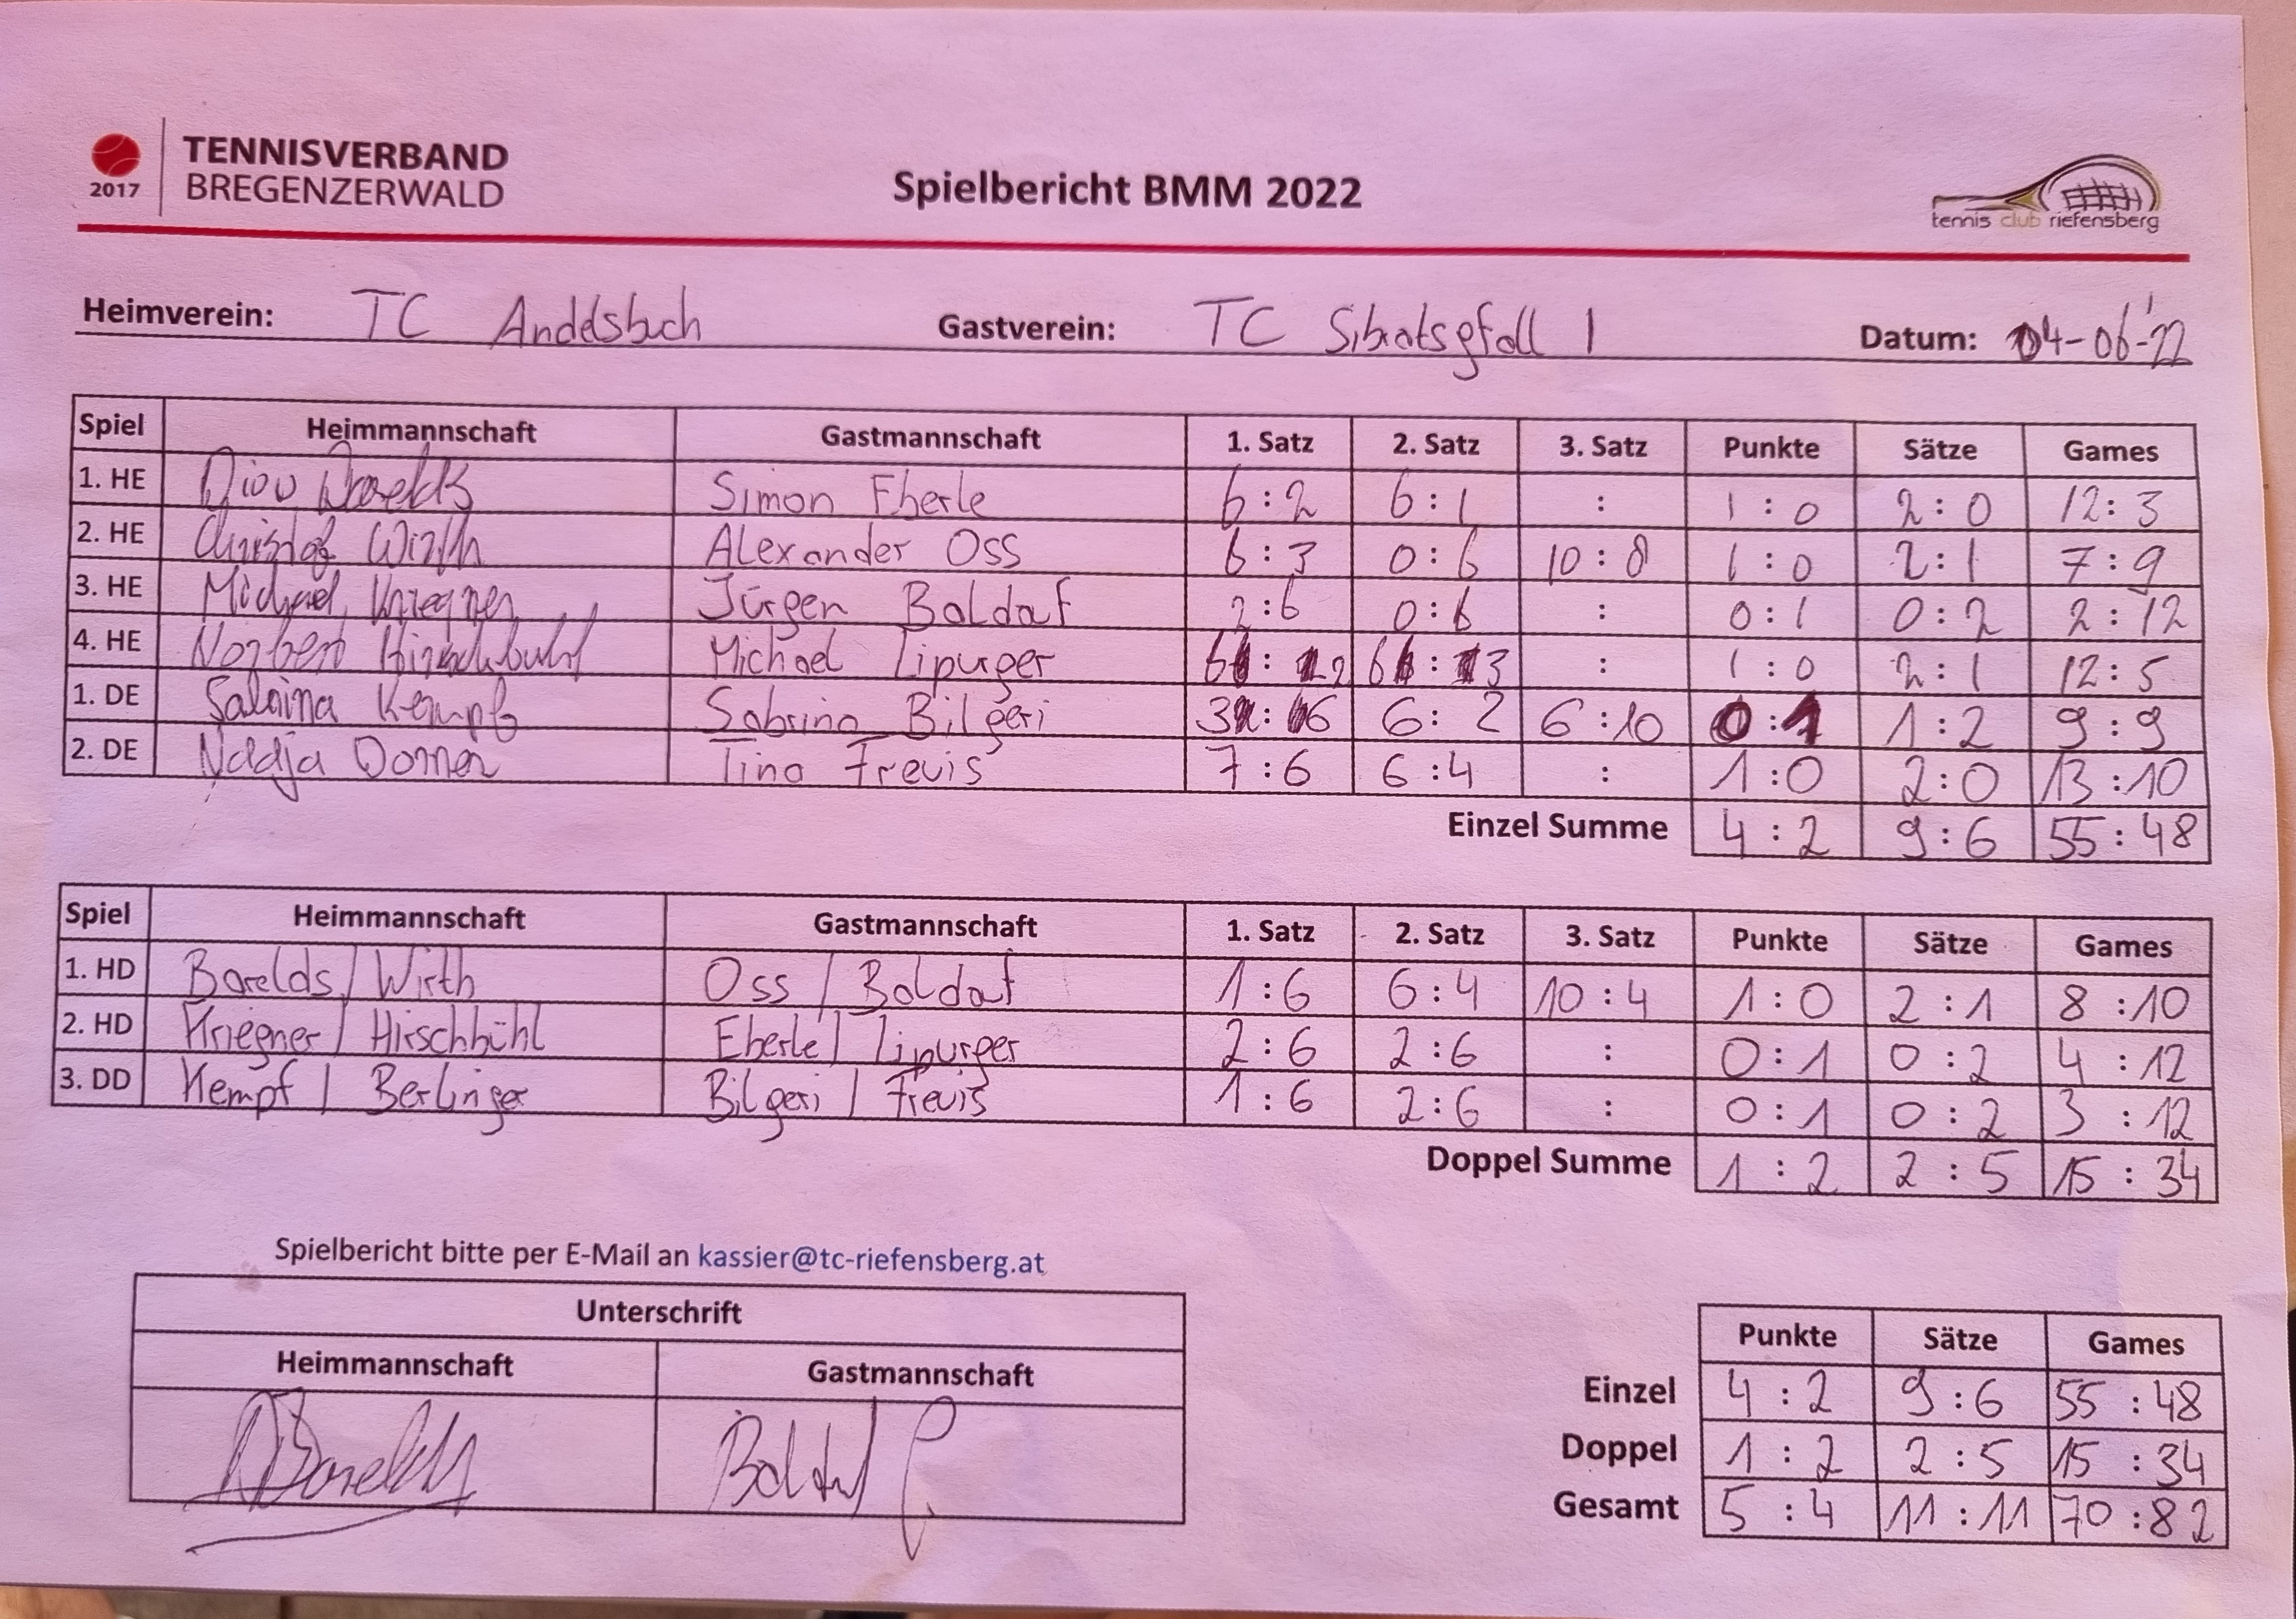 TENNISVERBAND
BREGENZERWALD
2017
Spielbericht BMM 2022
tennis club riefensberg
Heimverein: TC Andelsbuch Gastverein: TC Sibratsgfäll 1 Datum: 04-06-'22
Spiel Heimmannschaft Gastmannschaft 1. Satz 2. Satz 3. Satz Punkte Sätze Games
1. HE Simon Eberle 6:2 6:1 : 1:0 2:0 12:3
2. HE Christof Wirth Alexander Oss 6:3 0:6 10:8 1:0 2:1 7:9
3. HE Michael Kriegner Jürgen Baldauf 2:6 0:6 : 0:1 0:2 2:12
4. HE Norbert Hirschbühl Michael Lipurger 6:2 6:3 : 1:0 2:1 12:5
1. DE Sabrina Kempf Sabrina Bilgeri 3:6 6:2 6:10 0:1 1:2 9:9
2. DE Nadja Dorner Tina Frevis 7:6 6:4 : 1:0 2:0 13:10
Einzel Summe 4:2 9:6 55:48
Spiel Heimmannschaft Gastmannschaft 1. Satz 2. Satz 3. Satz Punkte Sätze Games
1. HD Barelds / Wirth Oss / Baldauf 1:6 6:4 10:4 1:0 2:1 8:10
2. HD Kriegner / Hirschbühl Eberle / Lipurger 2:6 2:6 : 0:1 0:2 4:12
3. DD Kempf / Berlinger Bilgeri / Frevis 1:6 2:6 : 0:1 0:2 3:12
Doppel Summe 1:2 2:5 15:34
Spielbericht bitte per E-Mail an kassier@tc-riefensberg.at
Unterschrift
Heimmannschaft Gastmannschaft
Punkte Sätze Games
Einzel 4:2 9:6 55:48
Doppel 1:2 2:5 15:34
Gesamt 5:4 11:11 70:82